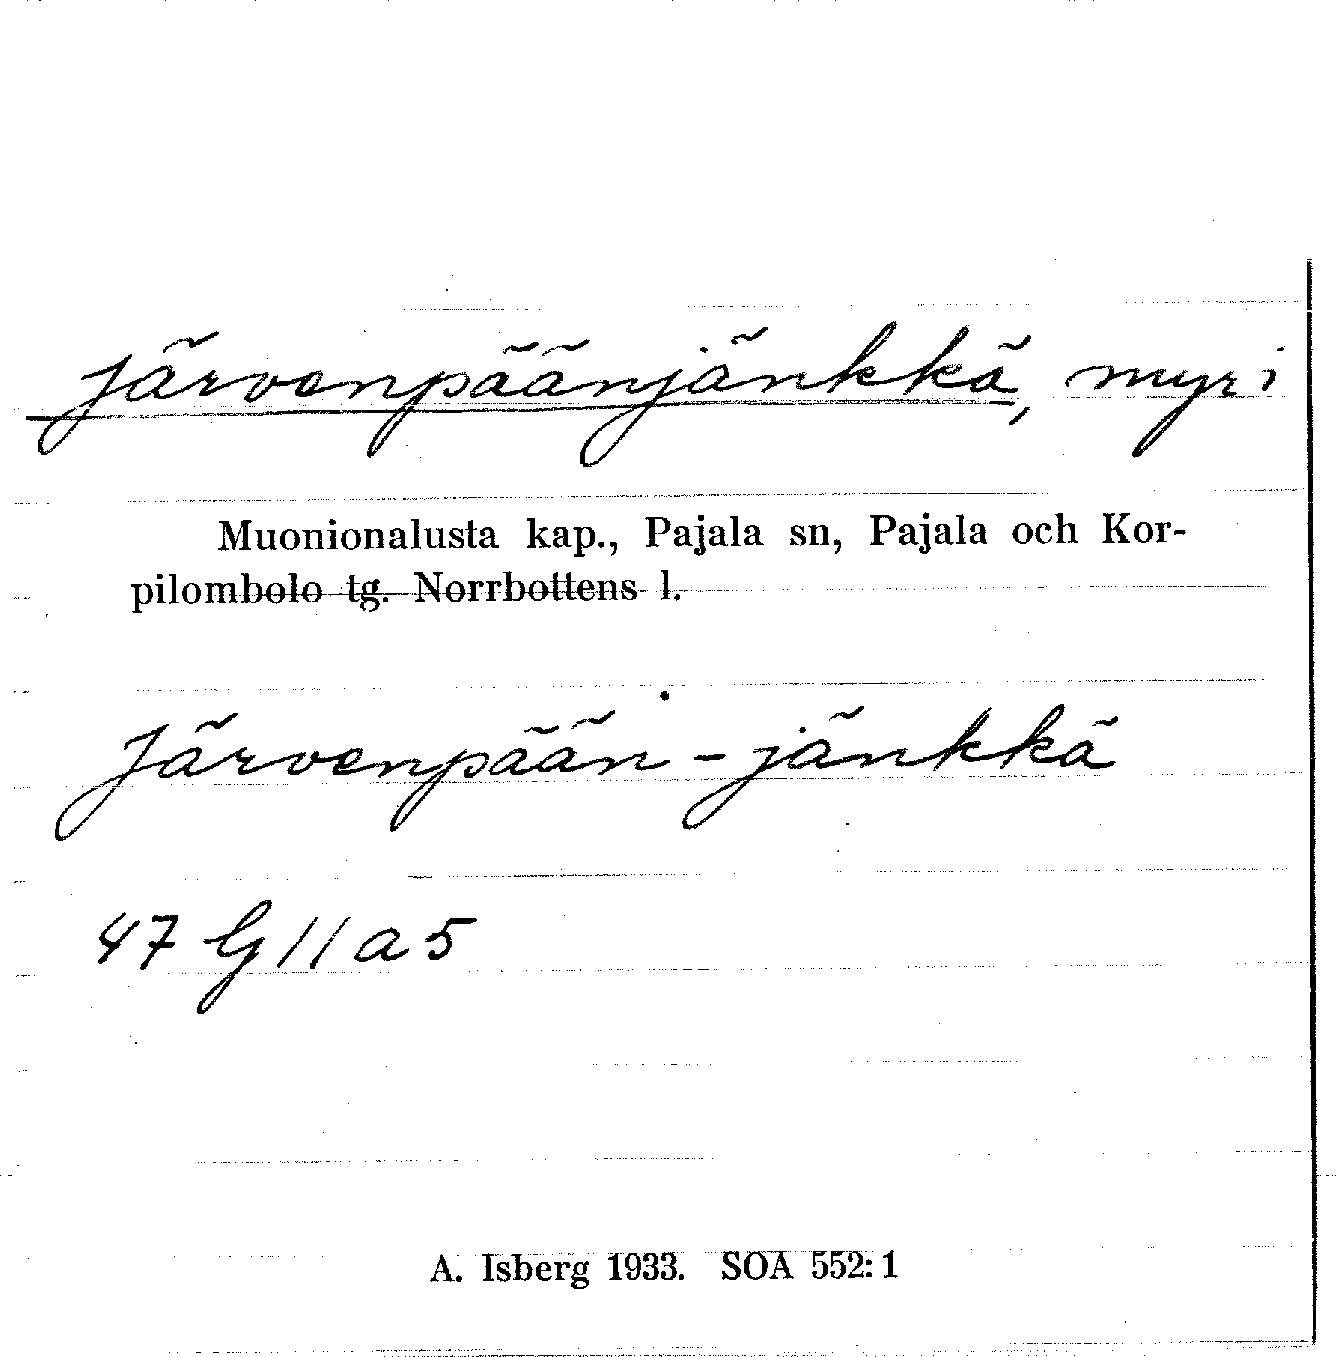 Järvenpäänjänkkä, myr i
Muonionalusta kap., Pajala sn, Pajala och Kor-
pilombolo tg. Norrbottens l.
Järvenpään-jänkkä
47 G 11 a 5
A. Isberg 1933. SOA 552:1